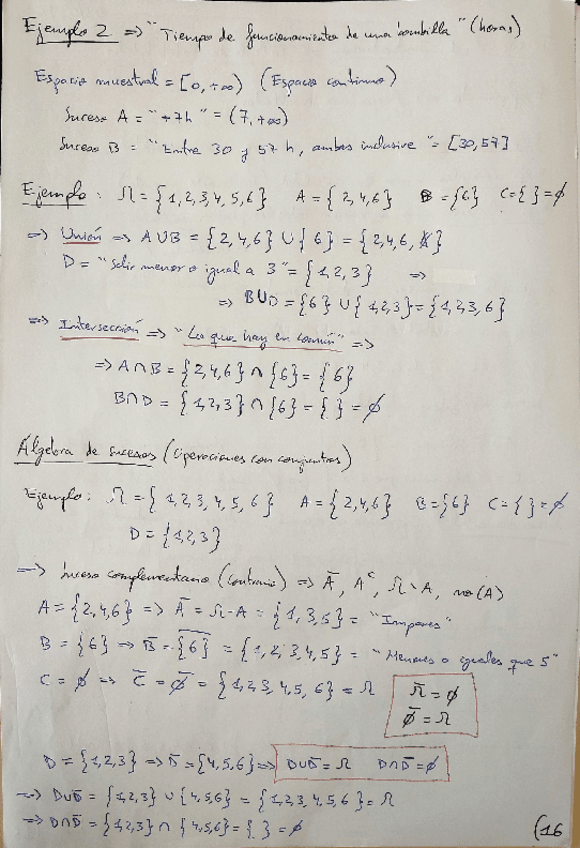 Ejemplo 2 => "Tiempo de funcionamiento de una bombilla" (horas)
Espacio muestral = [0, +∞) (Espacio continuo)
Suceso A = "+7h" = (7, +∞)
Suceso B = "Entre 30 y 57 h, ambos inclusive" = [30, 57]
Ejemplo: Ω = {1, 2, 3, 4, 5, 6} A = {2, 4, 6} B = {6} C = { } = ∅
=> Unión => A∪B = {2, 4, 6} ∪ {6} = {2, 4, 6, 6̸}
D = "Salir menor o igual a 3" = {1, 2, 3} =>
=> B∪D = {6} ∪ {1, 2, 3} = {1, 2, 3, 6}
=> Intersección => "Lo que hay en común" =>
=> A∩B = {2, 4, 6} ∩ {6} = {6}
B∩D = {1, 2, 3} ∩ {6} = { } = ∅
Álgebra de sucesos (Operaciones con conjuntos)
Ejemplo: Ω = {1, 2, 3, 4, 5, 6} A = {2, 4, 6} B = {6} C = { } = ∅
D = {1, 2, 3}
=> Suceso complementario (Contrario) => Ā, Aᶜ, Ω∖A, no(A)
A = {2, 4, 6} => Ā = Ω-A = {1, 3, 5} = "Impares"
B = {6} => B̄ = {6}̅ = {1, 2, 3, 4, 5} = "Menores o iguales que 5"
C = ∅ => C̄ = ∅̄ = {1, 2, 3, 4, 5, 6} = Ω
Ω̄ = ∅
∅̄ = Ω
D = {1, 2, 3} => D̄ = {4, 5, 6} => D∪D̄ = Ω D∩D̄ = ∅
=> D∪D̄ = {1, 2, 3} ∪ {4, 5, 6} = {1, 2, 3, 4, 5, 6} = Ω
=> D∩D̄ = {1, 2, 3} ∩ {4, 5, 6} = { } = ∅
(16